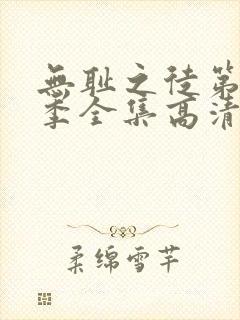 無耻之徒第
季全集高清
柔绵雪芊